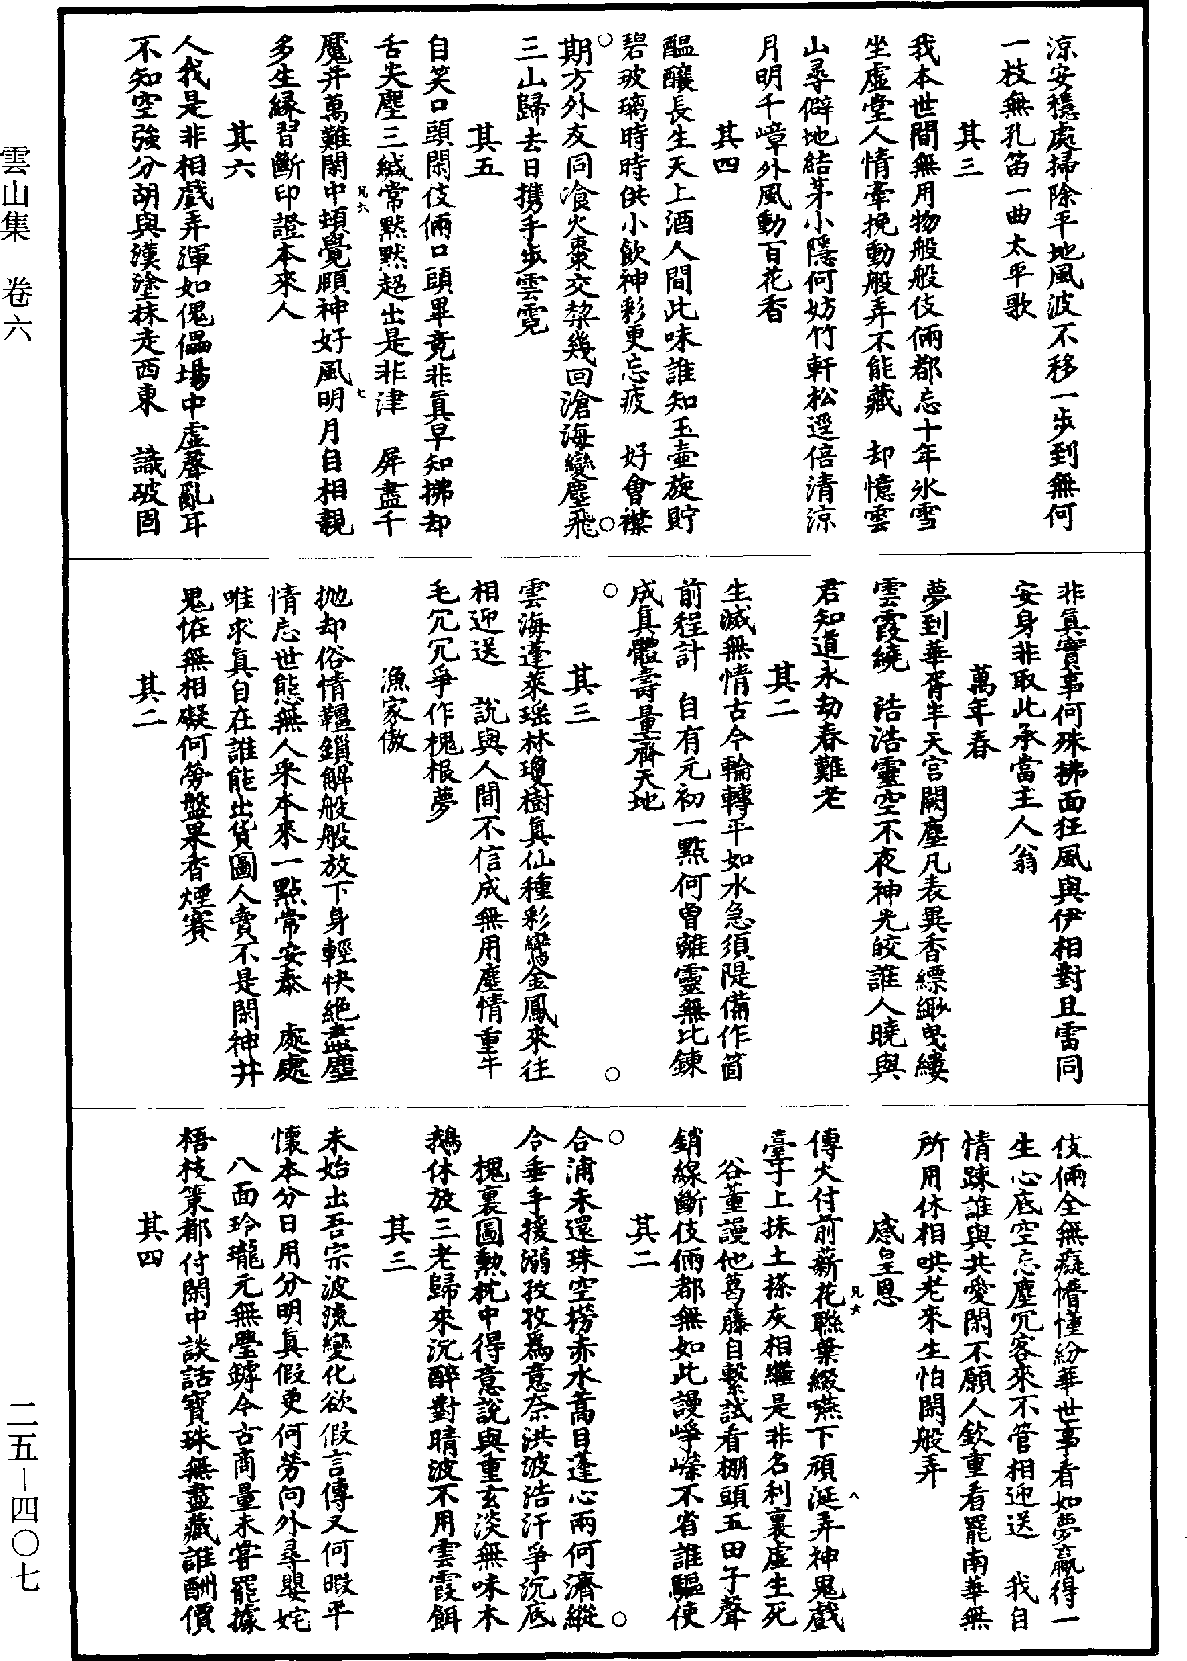 涼安穩處掃除平地風波不移一步到無何
一枝無孔笛一曲太平歌
其三
我本世間無用物般般伎倆都忘十年氷雪
坐虛堂人情牽挽動般弄不能藏　却憶雲
山尋僻地結茅小隱何妨竹軒松逕倍清涼
月明千嶂外風動百花香
其四
醖釀長生天上酒人間此味誰知玉壺旋貯
碧玻璃時時供小飲神彩更忘疲　好會襟
期方外友同飡火棗交棃幾回滄海變塵飛
三山歸去日携手步雲霓
其五
自笑口頭閑伎倆口頭畢竟非真早知拂却
舌尖塵三緘常默默超出是非津　屏盡千
魔并萬難閑中頓覺頤神好風明月自相親
多生緣習斷印證本來人
其六
人我是非相戲弄渾如傀儡場中虛聲亂耳
不知空強分胡與漢塗抹走西東　識破固
非真實事何殊拂面狂風與伊相對且雷同
安身非取此承當主人翁
萬年春
夢到華胥半天宫闕塵凡表異香縹緲曳縷
雲霞繞　浩浩靈空不夜神光皎誰人曉與
君知道永劫春難老
其二
生滅無情古今輪轉平如水急須隄備作箇
前程計　自有元初一點何曾離靈無比鍊
成真體壽量齊天地
其三
雲海蓬萊瑶林瓊樹真仙種彩鸞金鳳來往
相迎送　說與人間不信成無用塵情重牛
毛冗冗爭作槐根夢
漁家傲
拋却俗情韁鎖解般般放下身輕快絶盡塵
情忘世態無人采本來一點常安泰　處處
唯求真自在誰能出貨圖人賣不是閑神并
鬼怪無相礙何勞盤果香煙賽
其二
伎倆全無癡懵懂紛華世事看如夢贏得一
生心底空忘塵冗客來不管相迎送　我自
情踈誰與共愛閑不願人欽重看罷南華無
所用休相哄老來生怕閑般弄
感皇恩
傳火付前薪花聯葉綴嚥下頑涎弄神鬼戲
臺子上抹土搽灰相繼是非名利裏虛生死
谷董謾他葛藤自繫試看棚頭五田子聲
銷線斷伎倆都無如此謾崢嶸不省誰驅使
其二
合浦未還珠空撈赤水蒿目蓬心兩何濟縱
令垂手援溺孜孜爲意奈洪波浩汗爭沉底
槐裏圖勲枕中得意說與重玄淡無味木
鵝休放三老歸來沉醉對晴波不用雲霞餌
其三
未始出吾宗波流變化欲假言傳又何暇平
懷本分日用分明真假更何勞向外尋嬰姹
八面玲瓏元無璺罅今古商量未甞罷據
梧枝策都付閑中談話寳珠無盡藏誰酬價
其四
雲山集　卷六
二五－四〇七